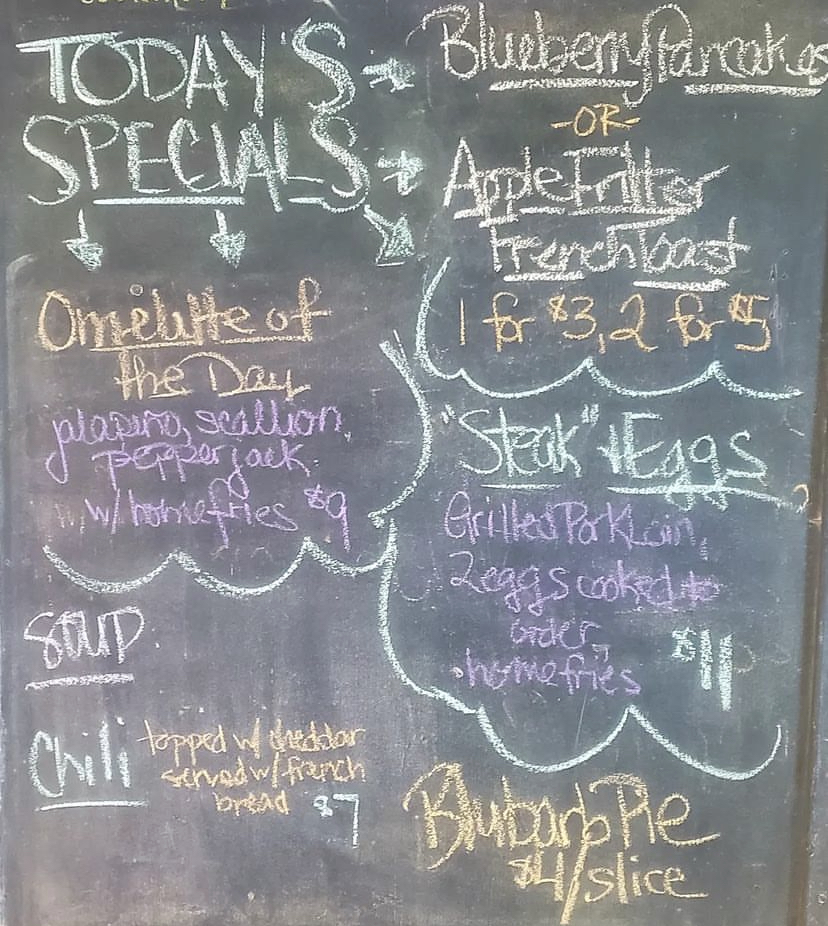 TODAY'S
SPECIALS
Blueberry Pancakes
-OR-
Apple Fritter
French Toast
1 for $3, 2 for $5
Omelette of
the Day
jalapeno, scallion,
pepperjack
w/ homefries $9
"Steak" + Eggs
Grilled Pork Loin,
2 eggs cooked to
order,
homefries $11
SOUP
Chili topped w/ cheddar
served w/ french
bread $7
Blubarb Pie
$4/slice